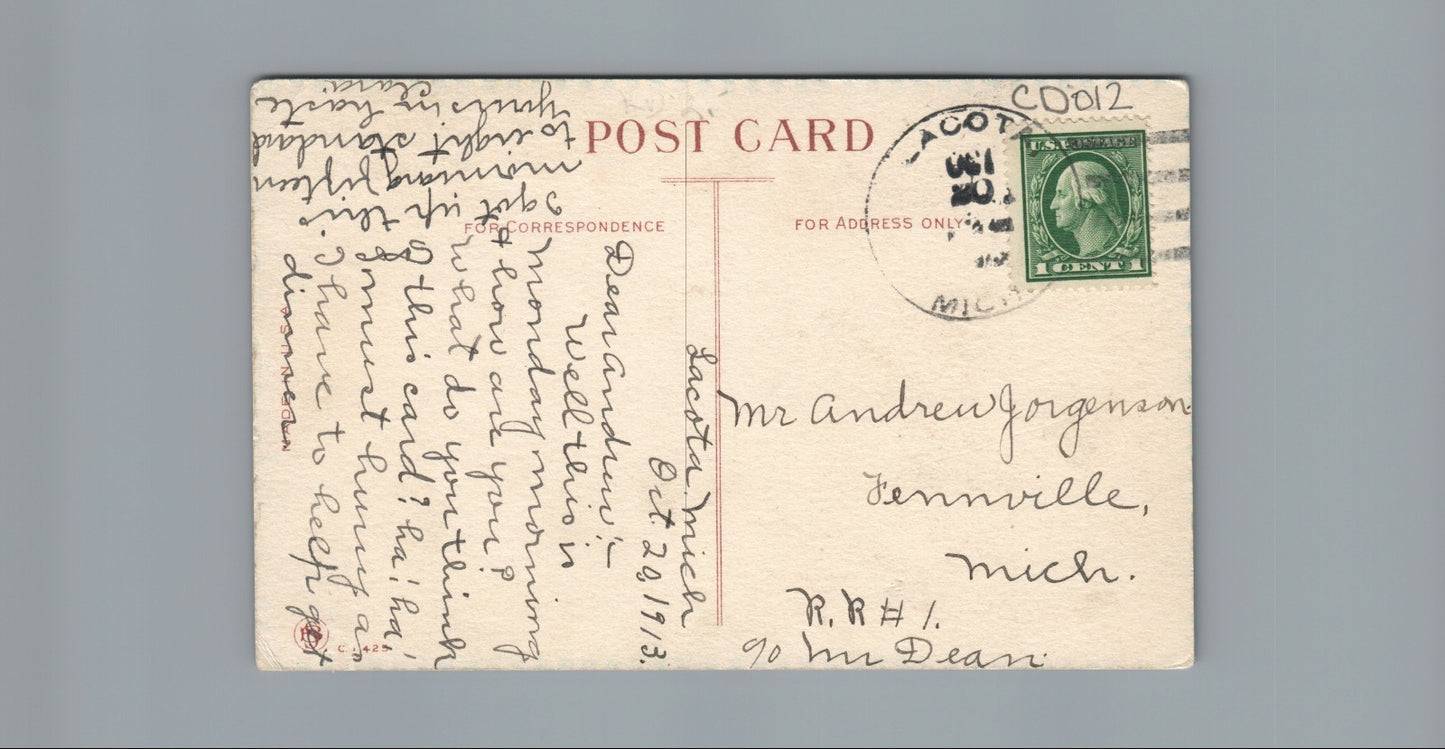 CD012
POST CARD
FOR CORRESPONDENCE
FOR ADDRESS ONLY
LACOTA
OCT
20
MICH
U.S. POSTAGE
1 CENT 1
Lacota Mich
Oct. 20, 1913.
Dear Andrew:-
Well this is
Monday morning
& how are you?
What do you think
of this card? ha! ha!
I must hurry as
I have to help get
dinner
I got up this
morning fifteen
to eight standard
yours in haste
Clara
Mr Andrew Jorgenson
Fennville,
Mich.
R. R # 1.
c/o Mr Dean
MADE IN U.S.A.
C. 425